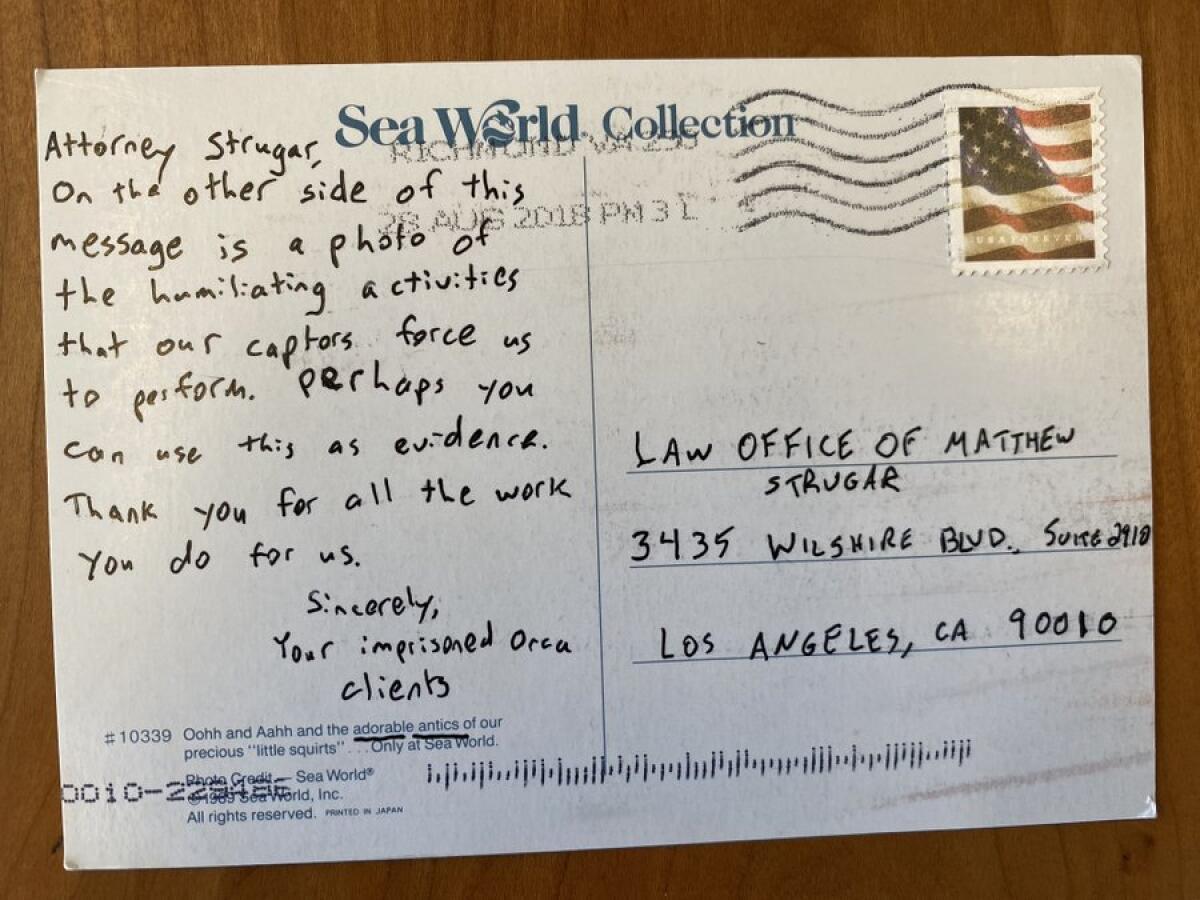 Sea World. Collection
RICHMOND VA
28 AUG 2018 PM 3 L
USA FOREVER
Attorney Strugar,
On the other side of this
message is a photo of
the humiliating activities
that our captors force us
to perform. Perhaps you
can use this as evidence.
Thank you for all the work
you do for us.
Sincerely,
Your imprisoned Orca
clients
LAW OFFICE OF MATTHEW
STRUGAR
3435 WILSHIRE BLVD., SUITE 2910
LOS ANGELES, CA 90010
#10339 Oohh and Aahh and the adorable antics of our
precious "little squirts" . . . Only at Sea World.
Photo Credit — Sea World®
© 1989 Sea World, Inc.
All rights reserved. PRINTED IN JAPAN